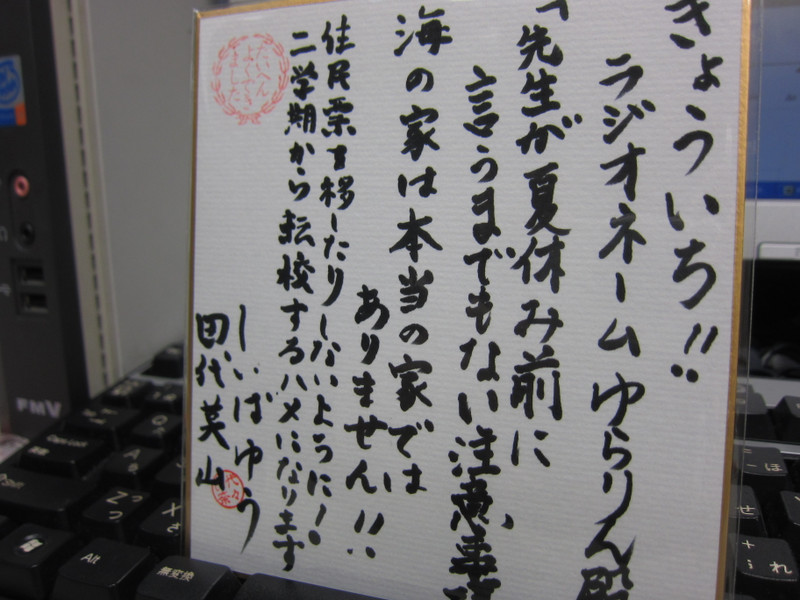 きょういち!!
ラジオネームゆらりん殿
「先生が夏休み前に
言うまでもない注意事項
海の家は本当の家では
ありません!!
住民票を移したりしないように!
二学期から転校するハメになります
しいばゆう
田代英山
たいへん
よくでき
ました
FMV
Caps Lock
英数
Shift
Alt
無変換
Q
A
Z
X
さ
つ
っ
ほ
せ
れ